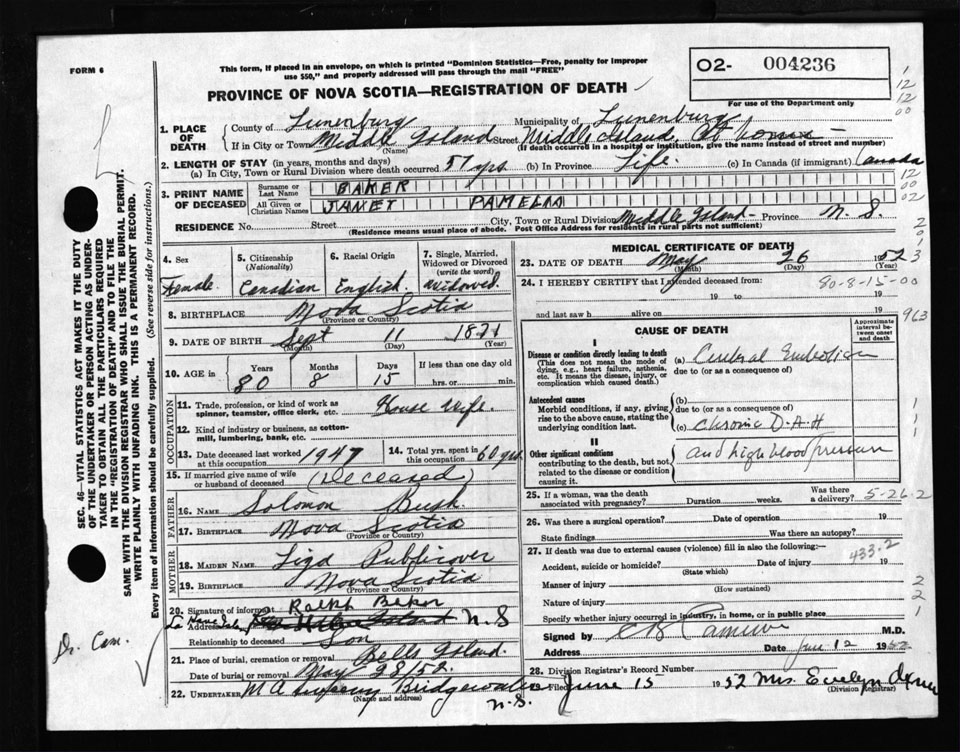 FORM 6
This form, if placed in an envelope, on which is printed "Dominion Statistics—Free, penalty for improper
use $50," and properly addressed will pass through the mail "FREE"
PROVINCE OF NOVA SCOTIA—REGISTRATION OF DEATH
O2- 004236
For use of the Department only
1. PLACE OF DEATH
County of Lunenburg Municipality of Lunenburg
If in City or Town Middle Island Street Middle Island At home
(Name) (If death occurred in a hospital or institution, give the name instead of street and number)
2. LENGTH OF STAY (in years, months and days)
(a) In City, Town or Rural Division where death occurred 57 yrs. (b) In Province Life. (c) In Canada (if immigrant) Canada
3. PRINT NAME OF DECEASED
Surname or Last Name BAKER
All Given or Christian Names JANET PAMELIA
RESIDENCE No. Street City, Town or Rural Division Middle Island Province N. S.
(Residence means usual place of abode. Post Office Address for residents in rural parts not sufficient)
4. Sex
Female
5. Citizenship
(Nationality)
Canadian
6. Racial Origin
English
7. Single, Married, Widowed or Divorced
(write the word)
Widowed
8. BIRTHPLACE Nova Scotia
(Province or Country)
9. DATE OF BIRTH Sept 11 1871
(Month) (Day) (Year)
10. AGE in Years Months Days If less than one day old
80 8 15 hrs. or min.
OCCUPATION
11. Trade, profession, or kind of work as spinner, teamster, office clerk, etc. House wife.
12. Kind of industry or business, as cotton-mill, lumbering, bank, etc.
13. Date deceased last worked at this occupation 1947
14. Total yrs. spent in this occupation 60 yrs
15. If married give name of wife or husband of deceased (Deceased)
FATHER
16. NAME Solomon Bush
17. BIRTHPLACE Nova Scotia
(Province or Country)
MOTHER
18. MAIDEN NAME Liza Publicover
19. BIRTHPLACE Nova Scotia
(Province or Country)
20. Signature of informant Ralph Baker
Address N. S
Relationship to deceased Son
21. Place of burial, cremation or removal Bells Island.
Date of burial or removal May 28/52.
22. UNDERTAKER M A Bridgewater
(Name and address) N.S.
MEDICAL CERTIFICATE OF DEATH
23. DATE OF DEATH May 26 1952
(Month) (Day) (Year)
24. I HEREBY CERTIFY that I attended deceased from:
19 to 19
80-8-15-00
and last saw h alive on 19
963
CAUSE OF DEATH
Approximate interval between onset and death
I
Disease or condition directly leading to death
(This does not mean the mode of dying, e.g., heart failure, asthenia, etc. It means the disease, injury, or complication which caused death.)
(a) Cerebral Embolism
due to (or as a consequence of)
Antecedent causes
Morbid conditions, if any, giving rise to the above cause, stating the underlying condition last.
(b)
due to (or as a consequence of)
(c) Chronic D.A.H
II
Other significant conditions
contributing to the death, but not related to the disease or condition causing it.
and high blood pressure
25. If a woman, was the death associated with pregnancy? Duration weeks. Was there a delivery? 5-26-2
26. Was there a surgical operation? Date of operation 19
State findings Was there an autopsy?
27. If death was due to external causes (violence) fill in also the following:—
433-2
Accident, suicide or homicide? Date of injury 19
(State which)
Manner of injury
(How sustained)
Nature of injury
Specify whether injury occurred in industry, in home, or in public place
Signed by Cameron M.D.
Address Date June 12 1952
28. Division Registrar's Record Number
Filed June 15 1952 Mrs. Evelyn
(Division Registrar)
SEC. 46—VITAL STATISTICS ACT MAKES IT THE DUTY
OF THE UNDERTAKER OR PERSON ACTING AS UNDER-
TAKER TO OBTAIN ALL THE PARTICULARS REQUIRED
IN THE "REGISTRATION OF DEATH" AND TO FILE THE
SAME WITH THE DIVISION REGISTRAR WHO SHALL ISSUE THE BURIAL PERMIT.
WRITE PLAINLY WITH UNFADING INK. THIS IS A PERMANENT RECORD.
Every item of information should be carefully supplied. (See reverse side for instructions.)
Dr. Cam.